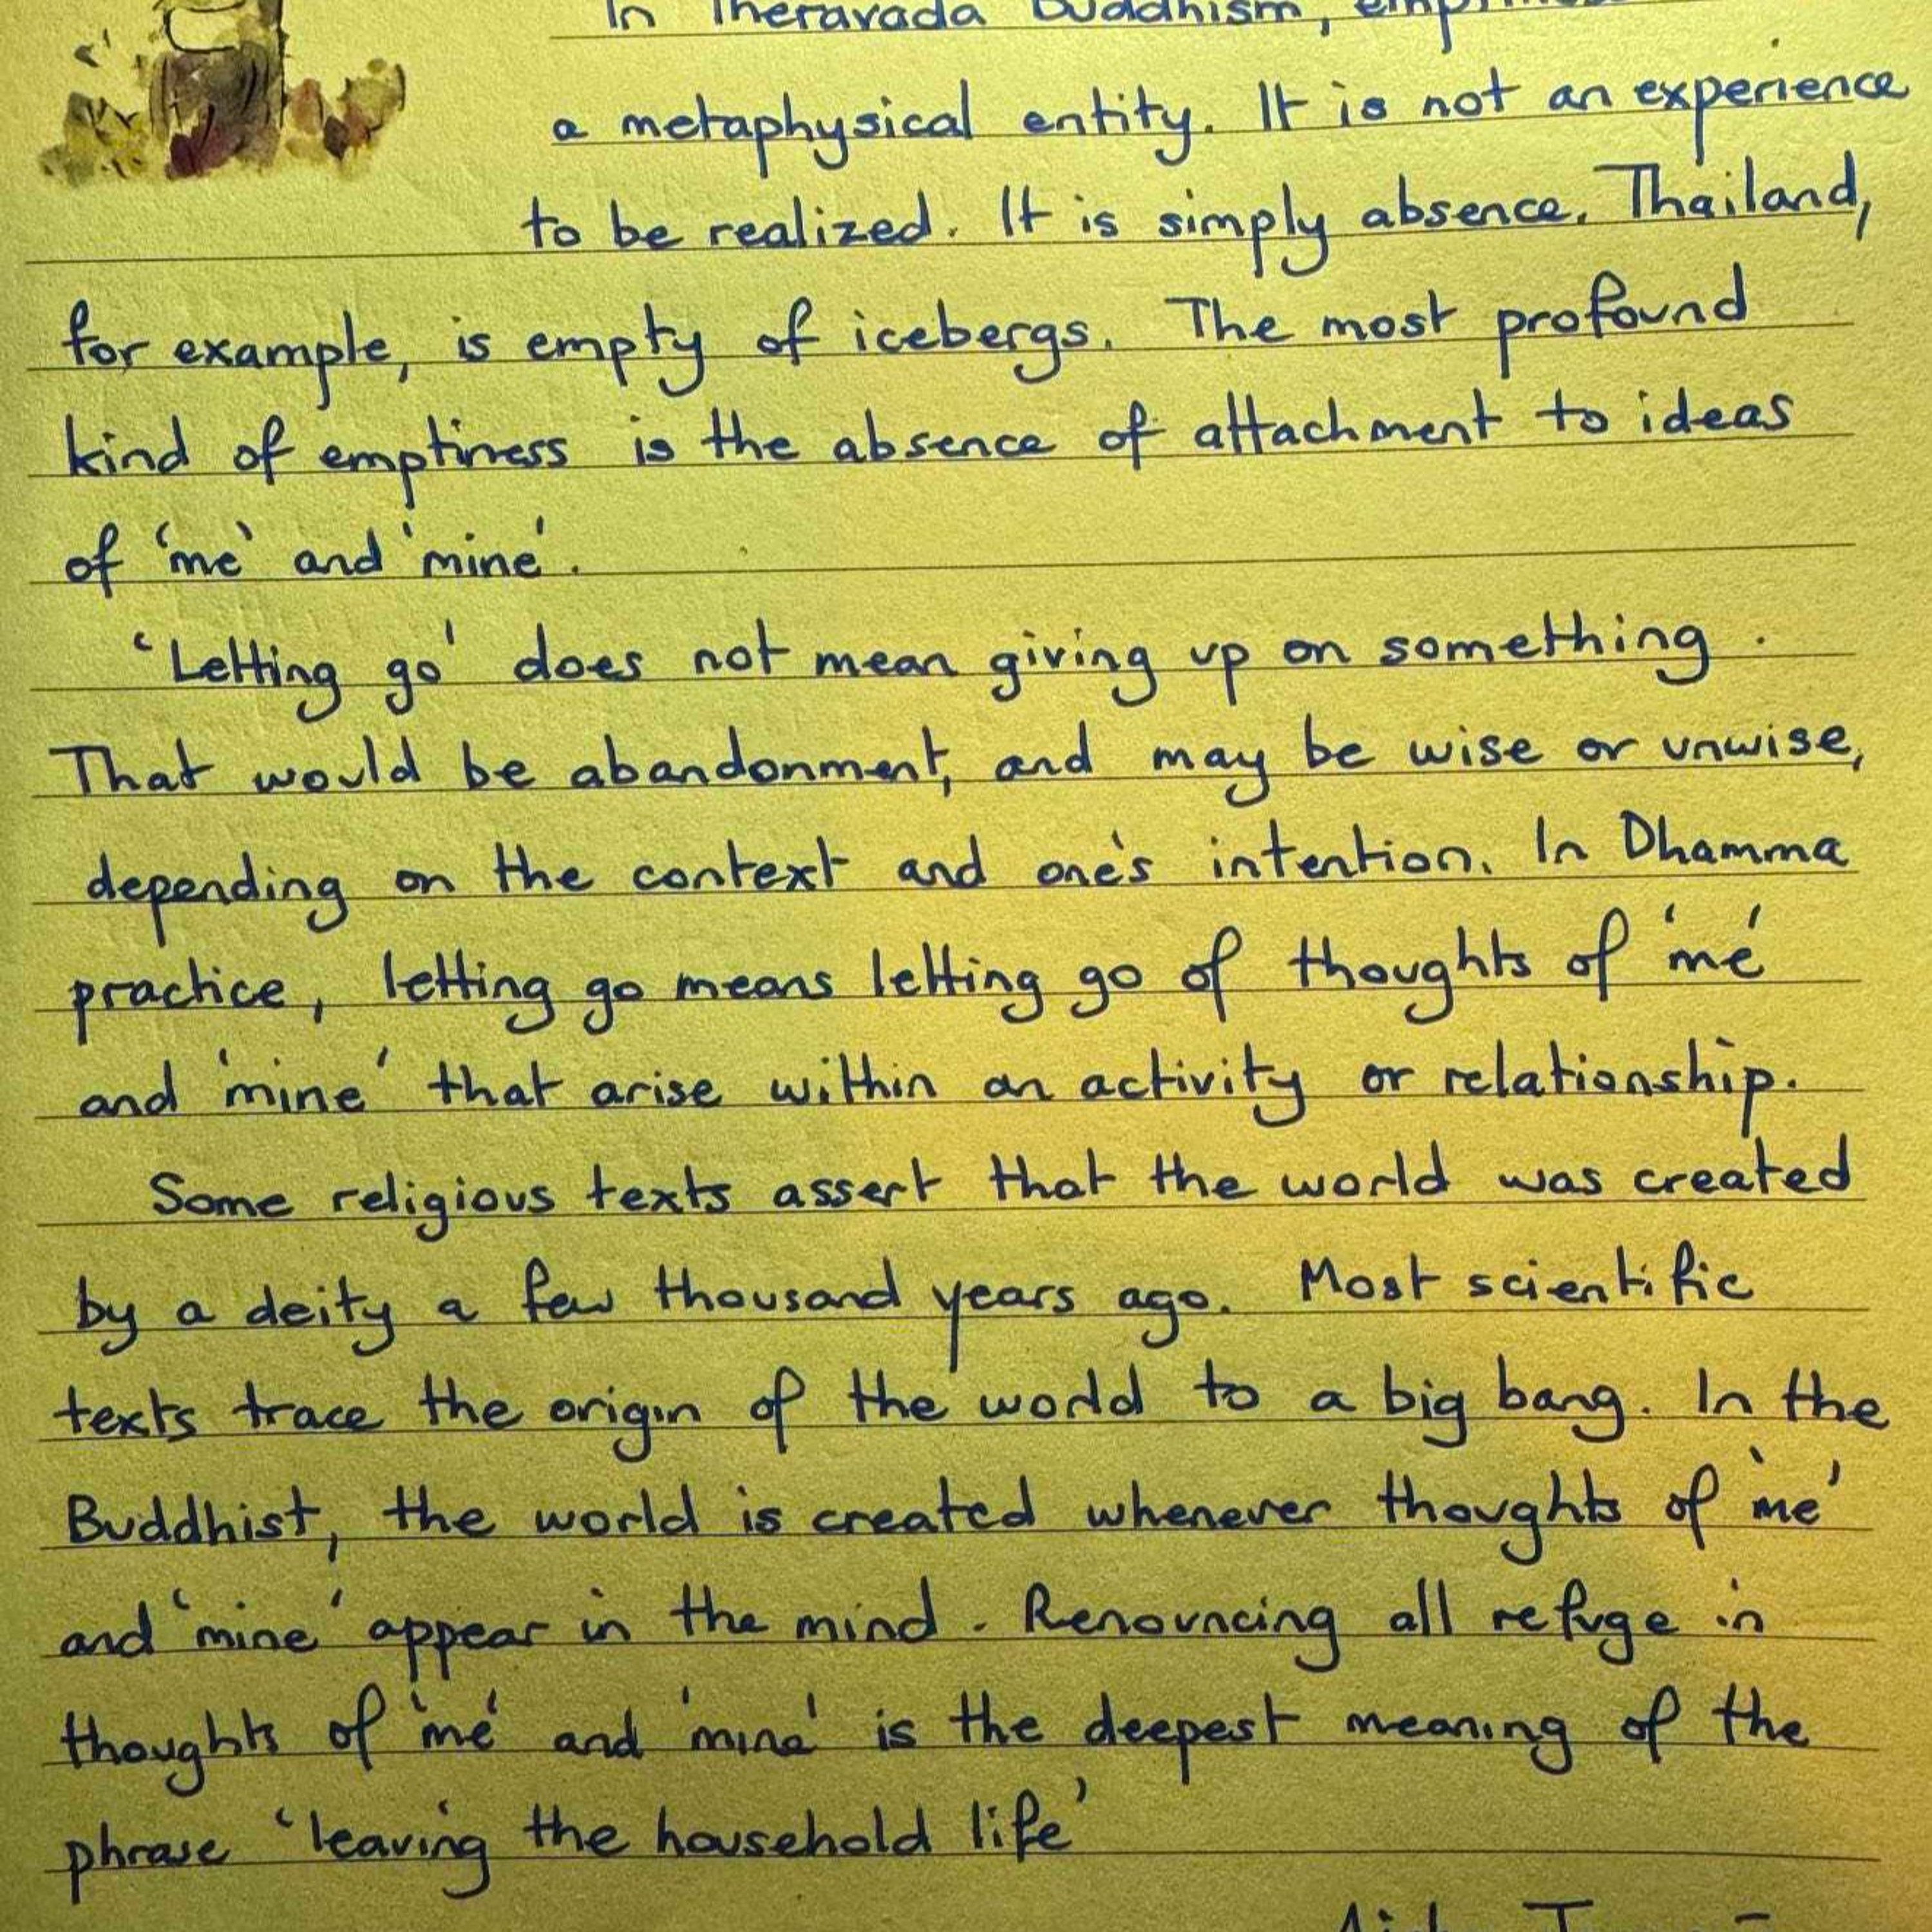 In Theravada Buddhism,
a metaphysical entity. It is not an experience
to be realized. It is simply absence. Thailand,
for example, is empty of icebergs. The most profound
kind of emptiness is the absence of attachment to ideas
of 'me' and 'mine'.
'Letting go' does not mean giving up on something.
That would be abandonment, and may be wise or unwise,
depending on the context and one's intention. In Dhamma
practice, letting go means letting go of thoughts of 'me'
and 'mine' that arise within an activity or relationship.
Some religious texts assert that the world was created
by a deity a few thousand years ago. Most scientific
texts trace the origin of the world to a big bang. In the
Buddhist, the world is created whenever thoughts of 'me'
and 'mine' appear in the mind. Renouncing all refuge in
thoughts of 'me' and 'mine' is the deepest meaning of the
phrase 'leaving the household life'